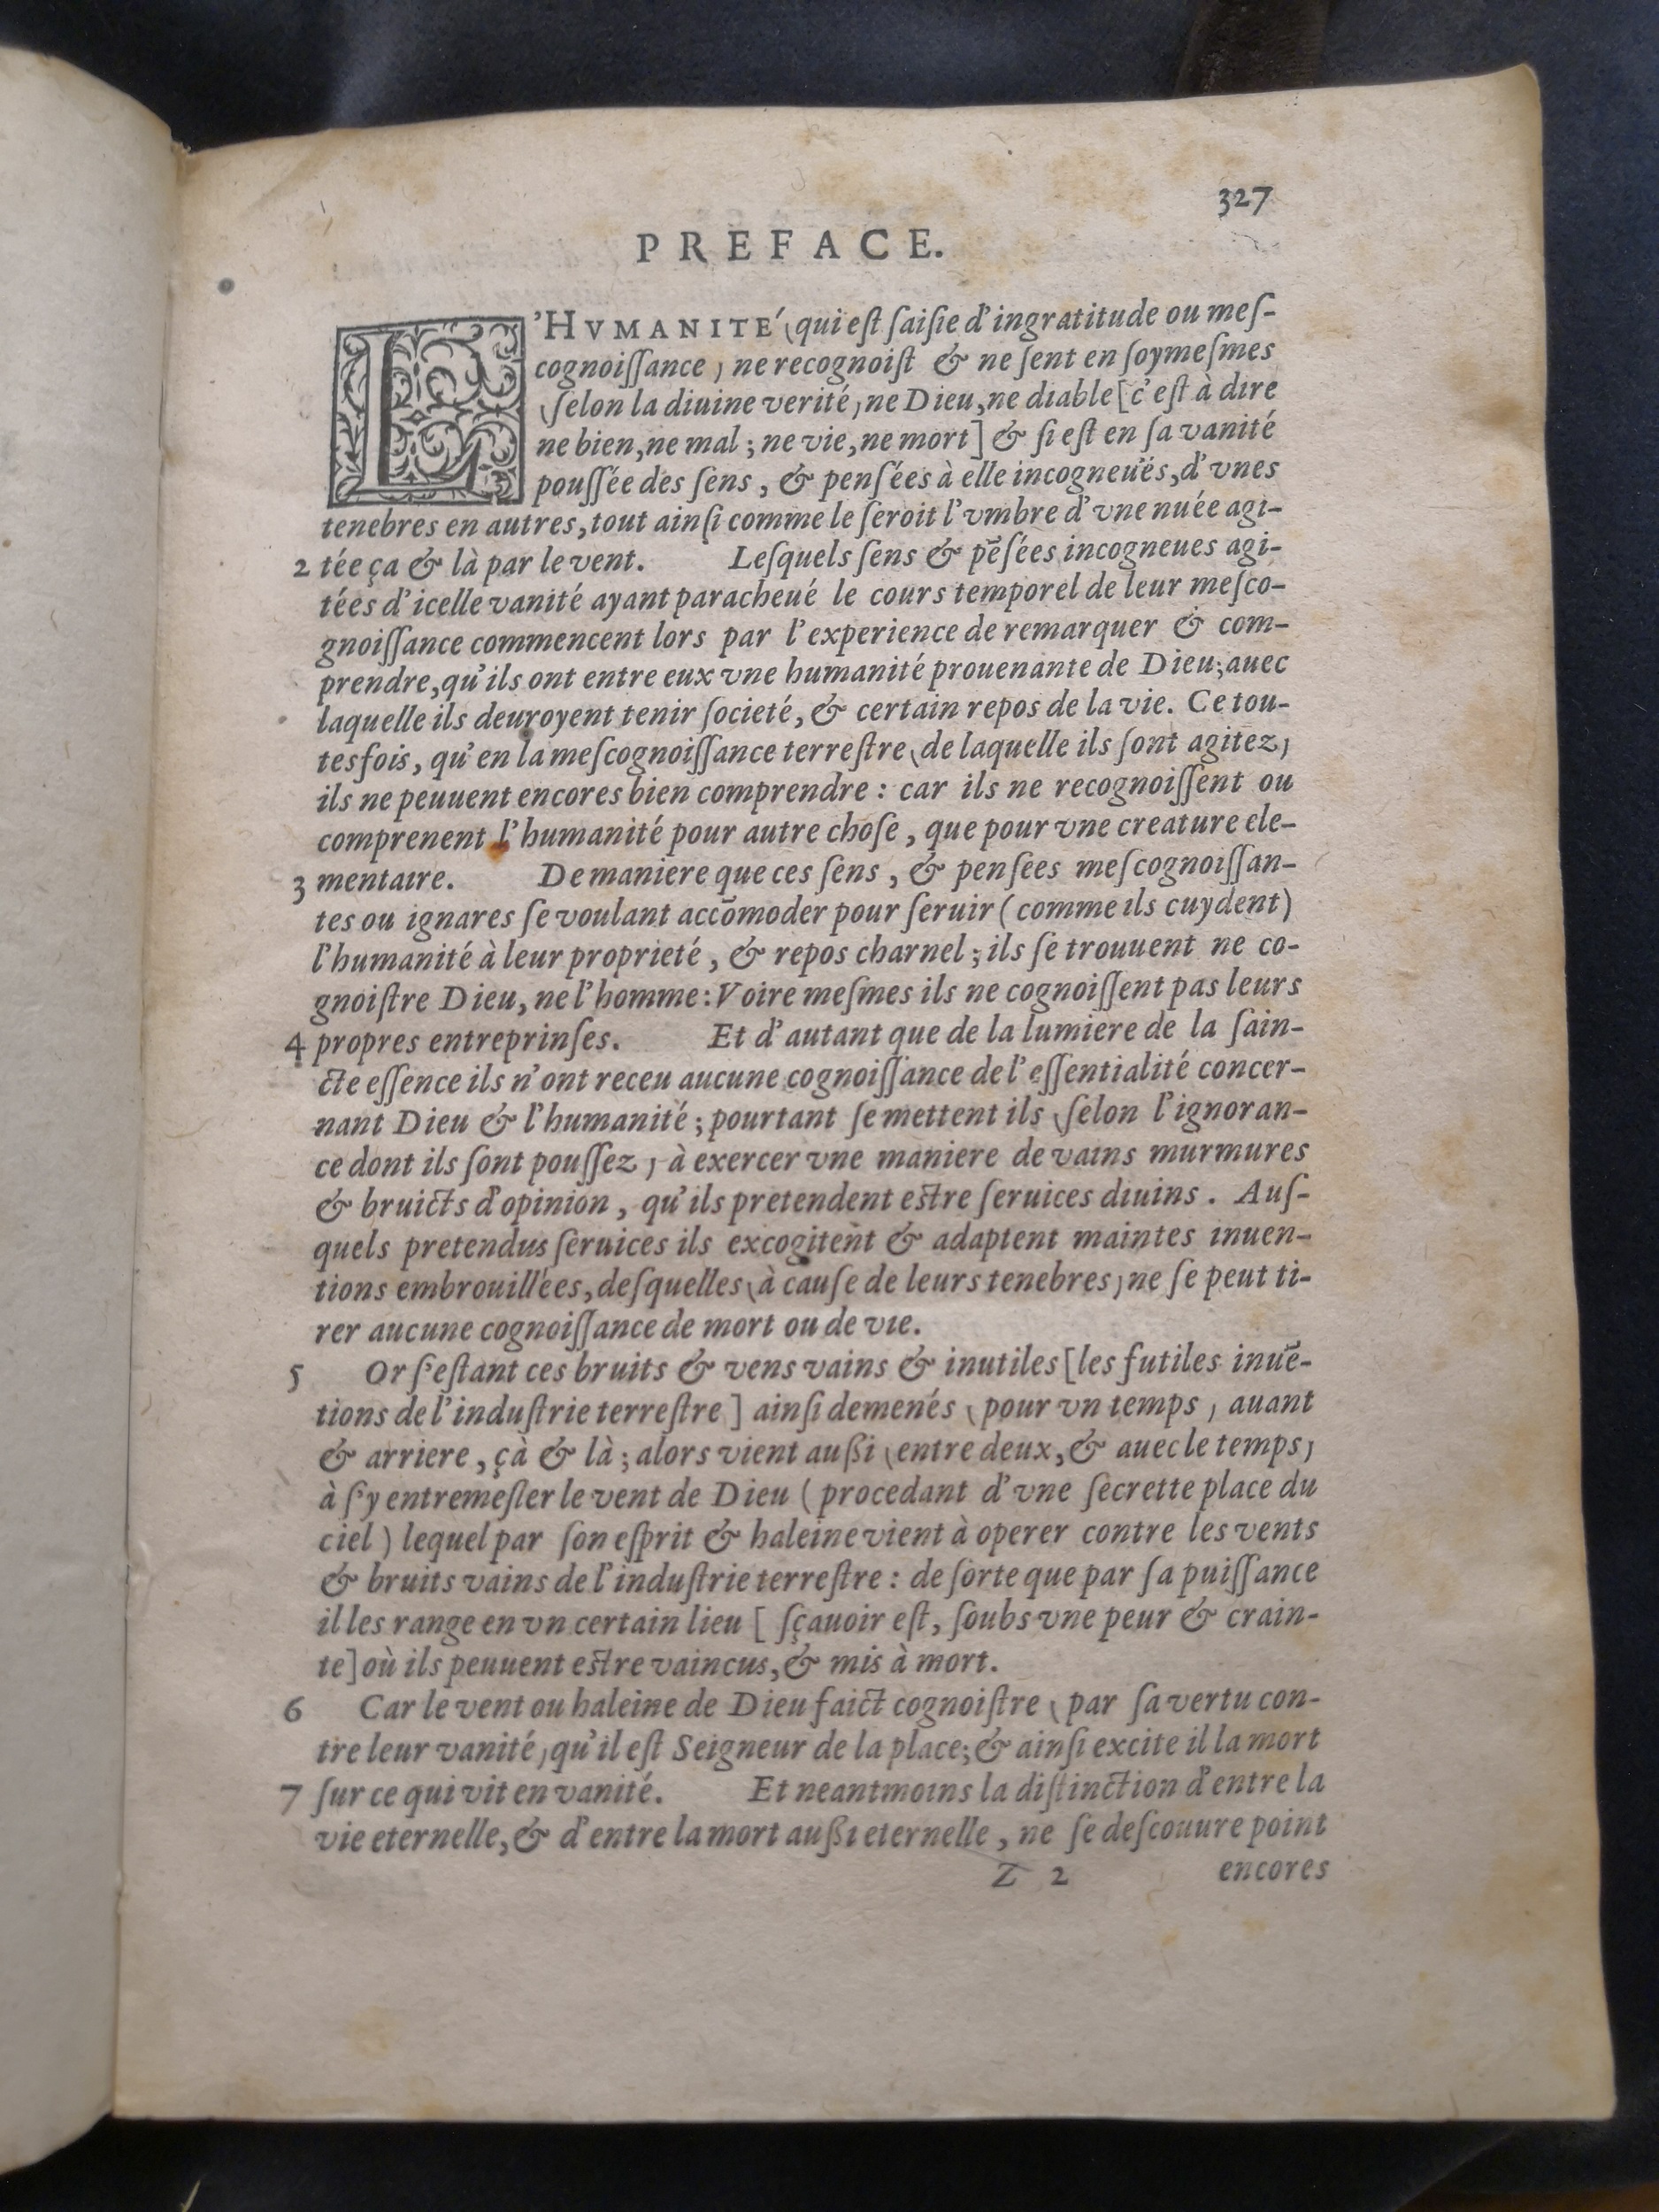 327
PREFACE.
L'HVMANITÉ (qui est saisie d'ingratitude ou mes-
cognoissance) ne recognoist & ne sent en soymesmes
(selon la diuine verité) ne Dieu, ne diable [c'est à dire
ne bien, ne mal; ne vie, ne mort] & si est en sa vanité
poussée des sens, & pensées à elle incogneuës, d'vnes
tenebres en autres, tout ainsi comme le seroit l'vmbre d'vne nuée agi-
2 tée ça & là par le vent. Lesquels sens & pẽsées incogneues agi-
tées d'icelle vanité ayant paracheué le cours temporel de leur mesco-
gnoissance commencent lors par l'experience de remarquer & com-
prendre, qu'ils ont entre eux vne humanité prouenante de Dieu; auec
laquelle ils deuroyent tenir societé, & certain repos de la vie. Ce tou-
tesfois, qu'en la mescognoissance terrestre (de laquelle ils sont agitez)
ils ne peuuent encores bien comprendre: car ils ne recognoissent ou
comprenent l'humanité pour autre chose, que pour vne creature ele-
3 mentaire. De maniere que ces sens, & pensees mescognoissan-
tes ou ignares se voulant accõmoder pour seruir (comme ils cuydent)
l'humanité à leur proprieté, & repos charnel; ils se trouuent ne co-
gnoistre Dieu, ne l'homme: Voire mesmes ils ne cognoissent pas leurs
4 propres entreprinses. Et d'autant que de la lumiere de la sain-
cte essence ils n'ont receu aucune cognoissance de l'essentialité concer-
nant Dieu & l'humanité; pourtant se mettent ils (selon l'ignoran-
ce dont ils sont poussez) à exercer vne maniere de vains murmures
& bruicts d'opinion, qu'ils pretendent estre seruices diuins. Aus-
quels pretendus seruices ils excogitent & adaptent maintes inuen-
tions embrouillées, desquelles (à cause de leurs tenebres) ne se peut ti-
rer aucune cognoissance de mort ou de vie.
5 Or s'estant ces bruits & vens vains & inutiles [les futiles inuẽ-
tions de l'industrie terrestre] ainsi demenés (pour vn temps) auant
& arriere, çà & là; alors vient aussi (entre deux, & auec le temps)
à s'y entremesler le vent de Dieu (procedant d'vne secrette place du
ciel) lequel par son esprit & haleine vient à operer contre les vents
& bruits vains de l'industrie terrestre: de sorte que par sa puissance
il les range en vn certain lieu [sçauoir est, soubs vne peur & crain-
te] où ils peuuent estre vaincus, & mis à mort.
6 Car le vent ou haleine de Dieu faict cognoistre (par sa vertu con-
tre leur vanité) qu'il est Seigneur de la place; & ainsi excite il la mort
7 sur ce qui vit en vanité. Et neantmoins la distinction d'entre la
vie eternelle, & d'entre la mort aussi eternelle, ne se descouure point
Z 2 encores